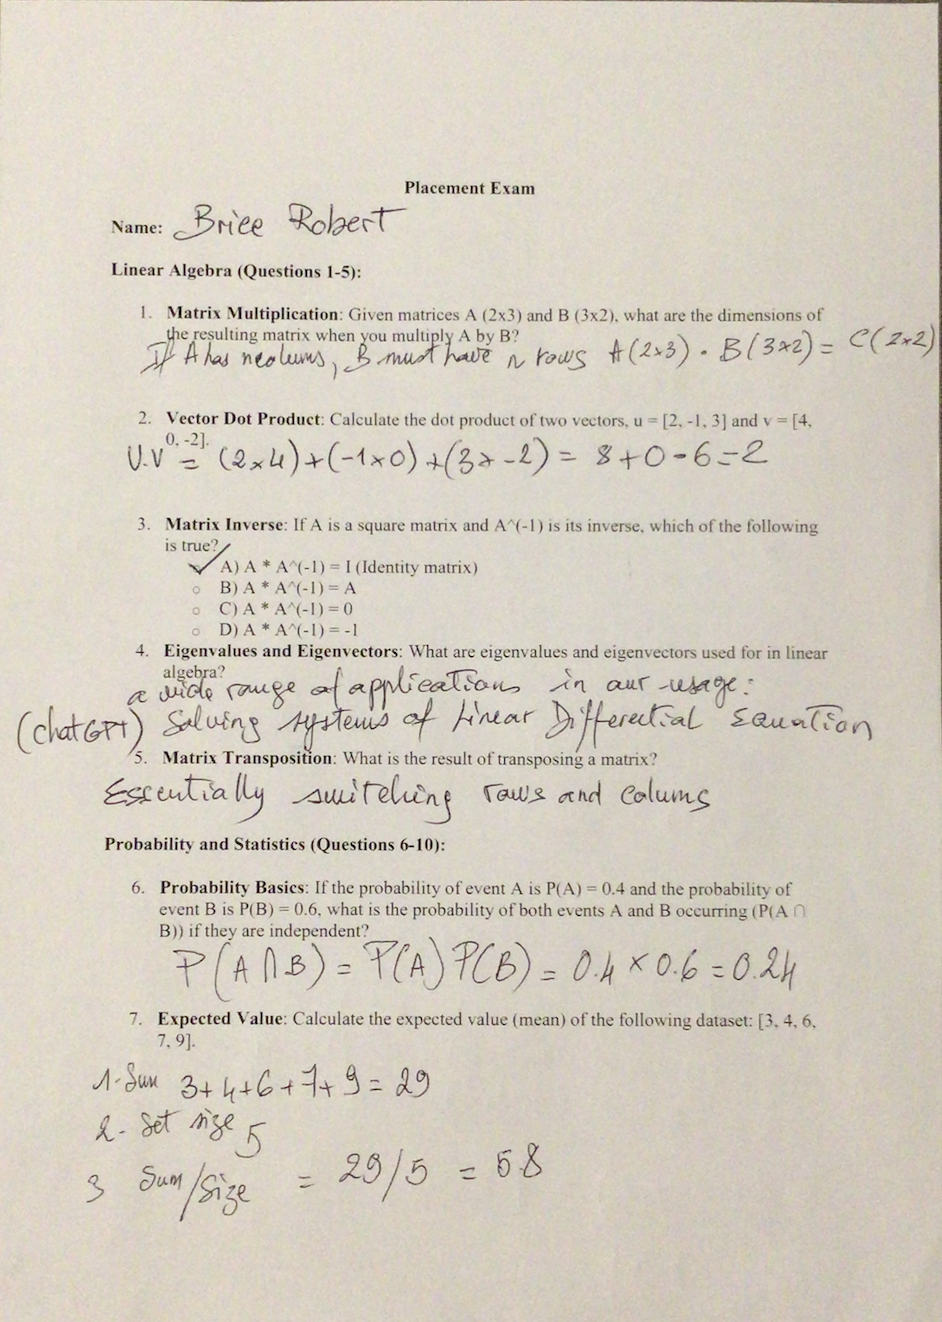 Placement Exam
Name: Brice Robert
Linear Algebra (Questions 1-5):
1. Matrix Multiplication: Given matrices A (2x3) and B (3x2), what are the dimensions of
the resulting matrix when you multiply A by B?
If A has n colums, B must have n rows A(2x3) · B(3x2) = C(2x2)
2. Vector Dot Product: Calculate the dot product of two vectors, u = [2, -1, 3] and v = [4,
0, -2].
U.V = (2x4)+(-1x0)+(3x-2) = 8+0-6=2
3. Matrix Inverse: If A is a square matrix and A^(-1) is its inverse, which of the following
is true?
✓ A) A * A^(-1) = I (Identity matrix)
○ B) A * A^(-1) = A
○ C) A * A^(-1) = 0
○ D) A * A^(-1) = -1
4. Eigenvalues and Eigenvectors: What are eigenvalues and eigenvectors used for in linear
algebra?
a wide range of applications in our usage:
(chatGPT) Solving systems of Linear Differential Equation
5. Matrix Transposition: What is the result of transposing a matrix?
Essentially switching rows and colums
Probability and Statistics (Questions 6-10):
6. Probability Basics: If the probability of event A is P(A) = 0.4 and the probability of
event B is P(B) = 0.6, what is the probability of both events A and B occurring (P(A ∩
B)) if they are independent?
P(A∩B) = P(A) P(B) = 0.4 × 0.6 = 0.24
7. Expected Value: Calculate the expected value (mean) of the following dataset: [3, 4, 6,
7, 9].
1-Sum 3+4+6+7+9=29
2- Set size 5
3 Sum/Size = 29/5 = 5.8